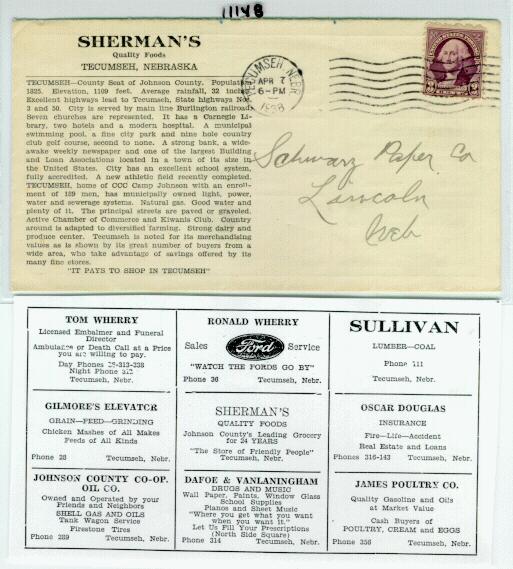 11148
SHERMAN'S
Quality Foods
TECUMSEH, NEBRASKA
TECUMSEH—County Seat of Johnson County. Population
1825. Elevation, 1109 feet. Average rainfall, 32 inches.
Excellent highways lead to Tecumseh, State highways Nos.
3 and 50. City is served by main line Burlington railroad.
Seven churches are represented. It has a Carnegie Li-
brary, two hotels and a modern hospital. A municipal
swimming pool, a fine city park and nine hole country
club golf course, second to none. A strong bank, a wide-
awake weekly newspaper and one of the largest Building
and Loan Associations located in a town of its size in
the United States. City has an excellent school system,
fully accredited. A new athletic field recently completed.
TECUMSEH, home of CCC Camp Johnson with an enroll-
ment of 189 men, has municipally owned light, power,
water and sewerage systems. Natural gas. Good water and
plenty of it. The principal streets are paved or graveled.
Active Chamber of Commerce and Kiwanis Club. Country
around is adapted to diversified farming. Strong dairy and
produce center. Tecumseh is noted for its merchandising
values as is shown by its great number of buyers from a
wide area, who take advantage of savings offered by its
many fine stores.
"IT PAYS TO SHOP IN TECUMSEH"
TECUMSEH NEBR.
APR 7
6-PM
1938
UNITED STATES POSTAGE
3 3
Schwarz Paper Co
Lincoln
Neb
TOM WHERRY
Licensed Embalmer and Funeral
Director
Ambulance or Death Call at a Price
you are willing to pay.
Day Phones 25-313-338
Night Phone 312
Tecumseh, Nebr.
RONALD WHERRY
Sales Ford Service
"WATCH THE FORDS GO BY"
Phone 36 Tecumseh, Nebr.
SULLIVAN
LUMBER—COAL
Phone 111
Tecumseh, Nebr.
GILMORE'S ELEVATOR
GRAIN—FEED—GRINDING
Chicken Mashes of All Makes
Feeds of All Kinds
Phone 28 Tecumseh, Nebr.
SHERMAN'S
QUALITY FOODS
Johnson County's Leading Grocery
for 24 YEARS
"The Store of Friendly People"
Tecumseh, Nebr.
OSCAR DOUGLAS
INSURANCE
Fire—Life—Accident
Real Estate and Loans
Phones 316-143 Tecumseh, Nebr.
JOHNSON COUNTY CO-OP.
OIL CO.
Owned and Operated by your
Friends and Neighbors
SHELL GAS AND OILS
Tank Wagon Service
Firestone Tires
Phone 289 Tecumseh, Nebr.
DAFOE & VANLANINGHAM
DRUGS AND MUSIC
Wall Paper, Paints, Window Glass
School Supplies
Pianos and Sheet Music
"Where you get what you want
when you want it."
Let Us Fill Your Prescriptions
(North Side Square)
Phone 314 Tecumseh, Nebr.
JAMES POULTRY CO.
Quality Gasoline and Oils
at Market Value
Cash Buyers of
POULTRY, CREAM and EGGS
Phone 356 Tecumseh, Nebr.